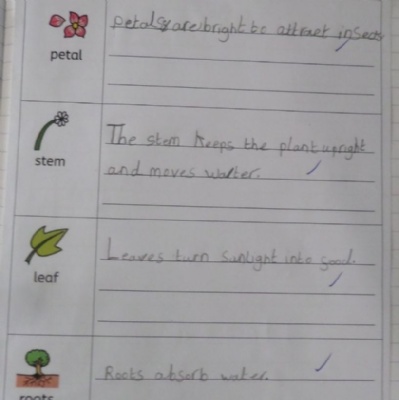 petals are bright be attract insects
petal
The stem keeps the plant upright
and moves warter.
stem
Leaves turn sunlight into food.
leaf
Roots absorb water.
roots